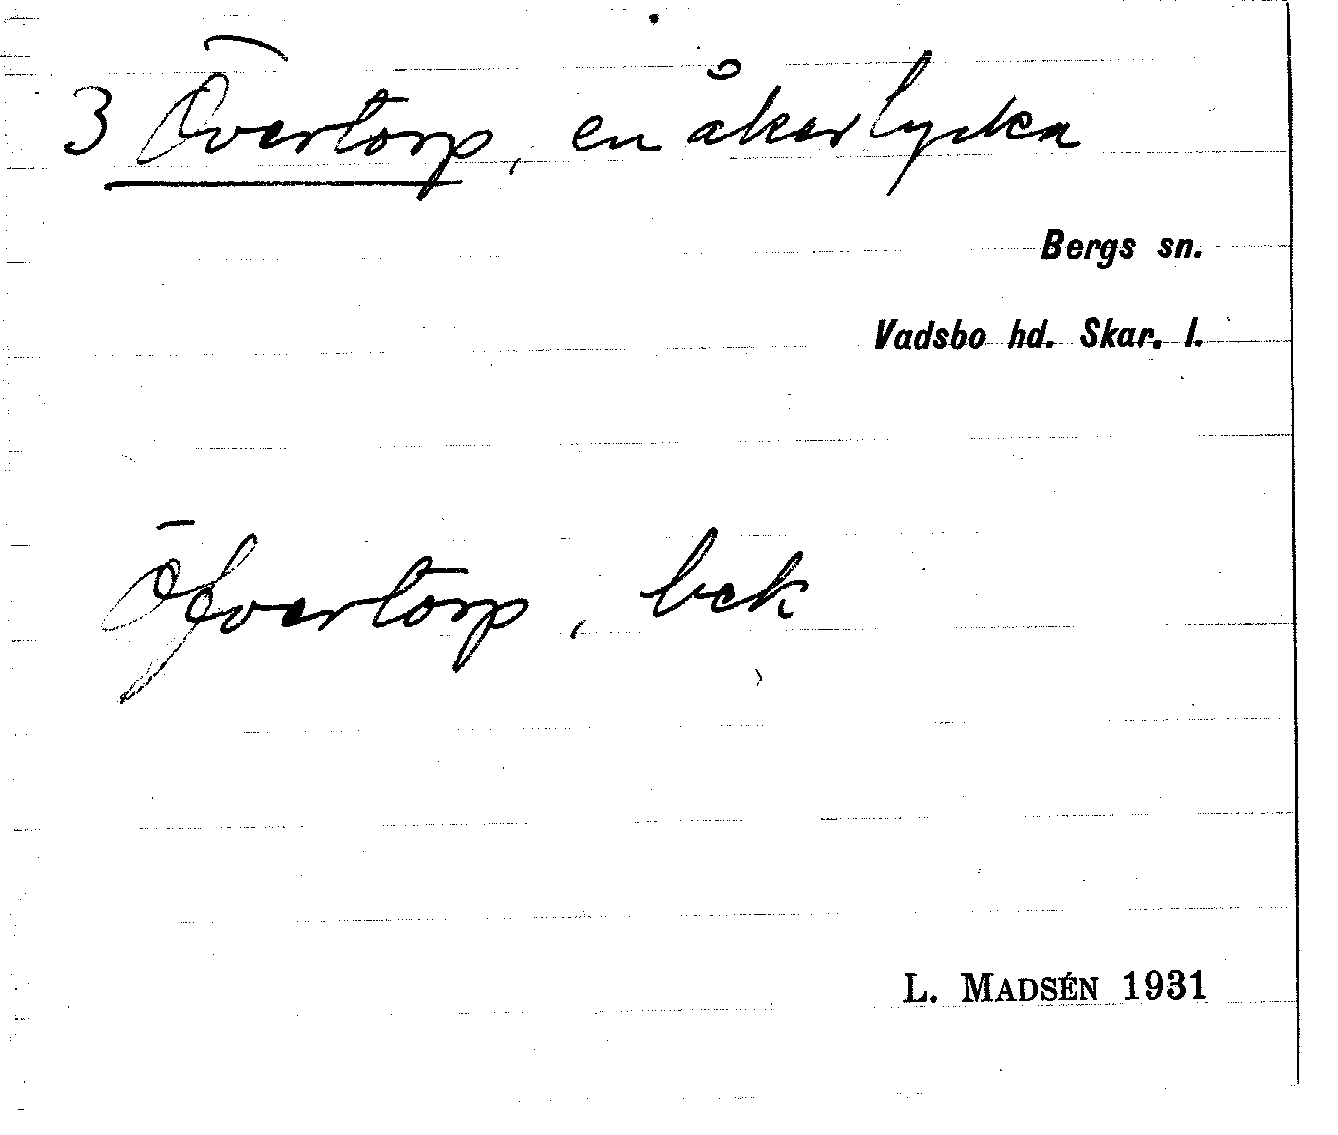 3 Övertorp, en åkerlycka
Bergs sn.
Vadsbo hd. Skar. l.
Öfvertorp, bek
L. MADSÉN 1931